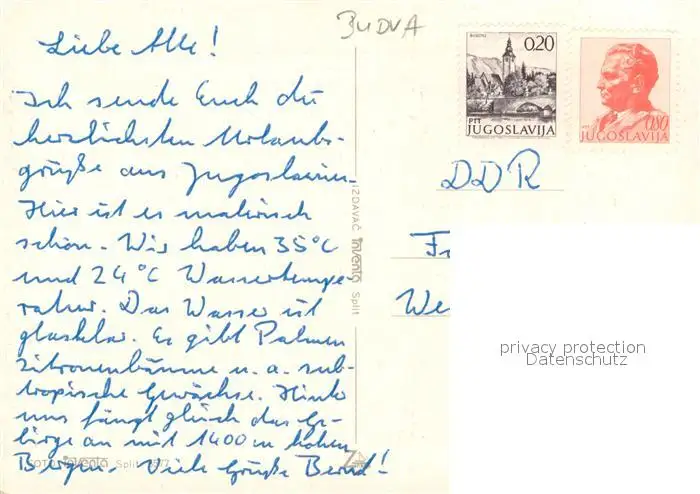 BUDVA
Liebe Alle!
Ich sende Euch die
herzlichsten Urlaubs-
grüße aus Jugoslawien.
Hier ist es malerisch
schön. Wir haben 35°C
und 24°C Wassertempe-
ratur. Das Wasser ist
glasklar. Es gibt Palmen
Zitronenbäume u. a. sub-
tropische Gewächse. Hinter
uns fängt gleich das Ge-
birge an mit 1400 m hohen
Bergen. Viele Grüße Bernd!
FOTO inventa Split
IZDAVAČ inventa Split
0.20
PTT
JUGOSLAVIJA
0.80
JUGOSLAVIJA
DDR
Fr
We
privacy protection
Datenschutz